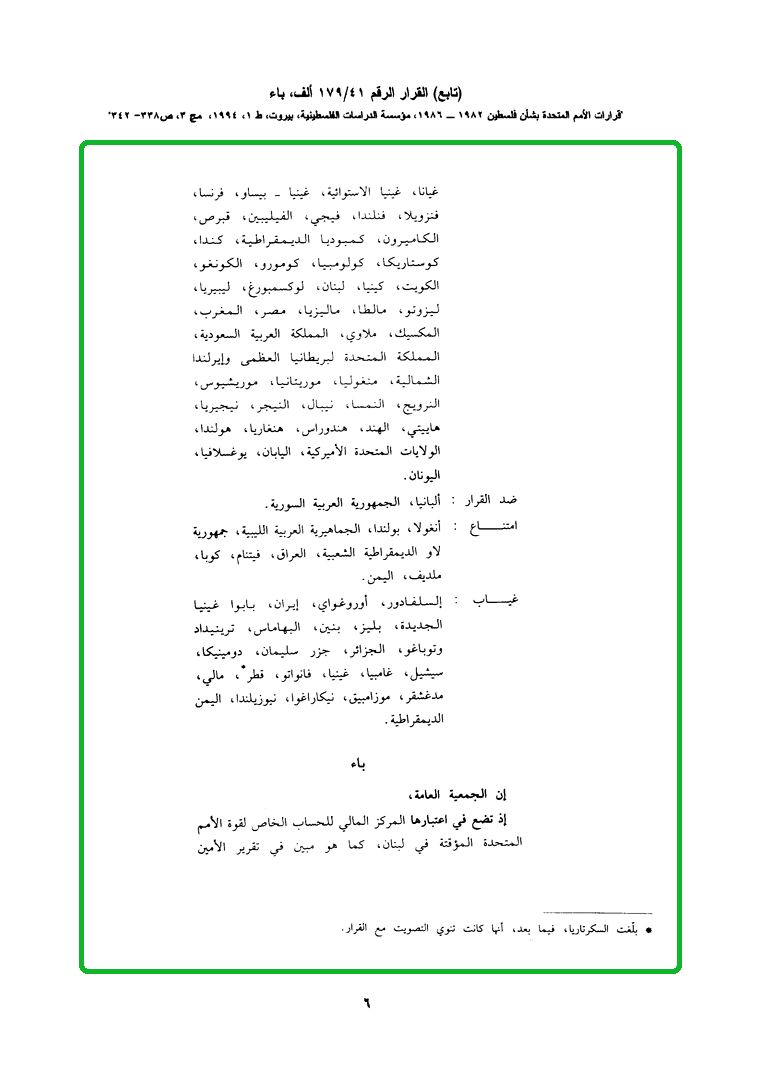 (تابع) القرار الرقم ١٧٩/٤١ ألف، باء
"قرارات الأمم المتحدة بشأن فلسطين ١٩٨٢ ــ ١٩٨٦، مؤسسة الدراسات الفلسطينية، بيروت، ط ١، ١٩٩٤، مج ٣، ص٣٣٨- ٣٤٢"
غيانا، غينيا الاستوائية، غينيا ـ بيساو، فرنسا،
فنزويلا، فنلندا، فيجي، الفيليبين، قبرص،
الكاميرون، كمبوديا الديمقراطية، كندا،
كوستاريكا، كولومبيا، كومورو، الكونغو،
الكويت، كينيا، لبنان، لوكسمبورغ، ليبيريا،
ليزوتو، مالطا، ماليزيا، مصر، المغرب،
المكسيك، ملاوي، المملكة العربية السعودية،
المملكة المتحدة لبريطانيا العظمى وإيرلندا
الشمالية، منغوليا، موريتانيا، موريشيوس،
النرويج، النمسا، نيبال، النيجر، نيجيريا،
هاييتي، الهند، هندوراس، هنغاريا، هولندا،
الولايات المتحدة الأميركية، اليابان، يوغسلافيا،
اليونان.
ضد القرار : ألبانيا، الجمهورية العربية السورية.
امتنـــاع : أنغولا، بولندا، الجماهيرية العربية الليبية، جمهورية
لاو الديمقراطية الشعبية، العراق، فيتنام، كوبا،
ملديف، اليمن.
غيـــاب : إلسلفادور، أوروغواي، إيران، بابوا غينيا
الجديدة، بليز، بنين، البهاماس، ترينيداد
وتوباغو، الجزائر، جزر سليمان، دومينيكا،
سيشيل، غامبيا، غينيا، فانواتو، قطر*، مالي،
مدغشقر، موزامبيق، نيكاراغوا، نيوزيلندا، اليمن
الديمقراطية.
باء
إن الجمعية العامة،
إذ تضع في اعتبارها المركز المالي للحساب الخاص لقوة الأمم
المتحدة المؤقتة في لبنان، كما هو مبين في تقرير الأمين
* بلّغت السكرتاريا، فيما بعد، أنها كانت تنوي التصويت مع القرار.
٦